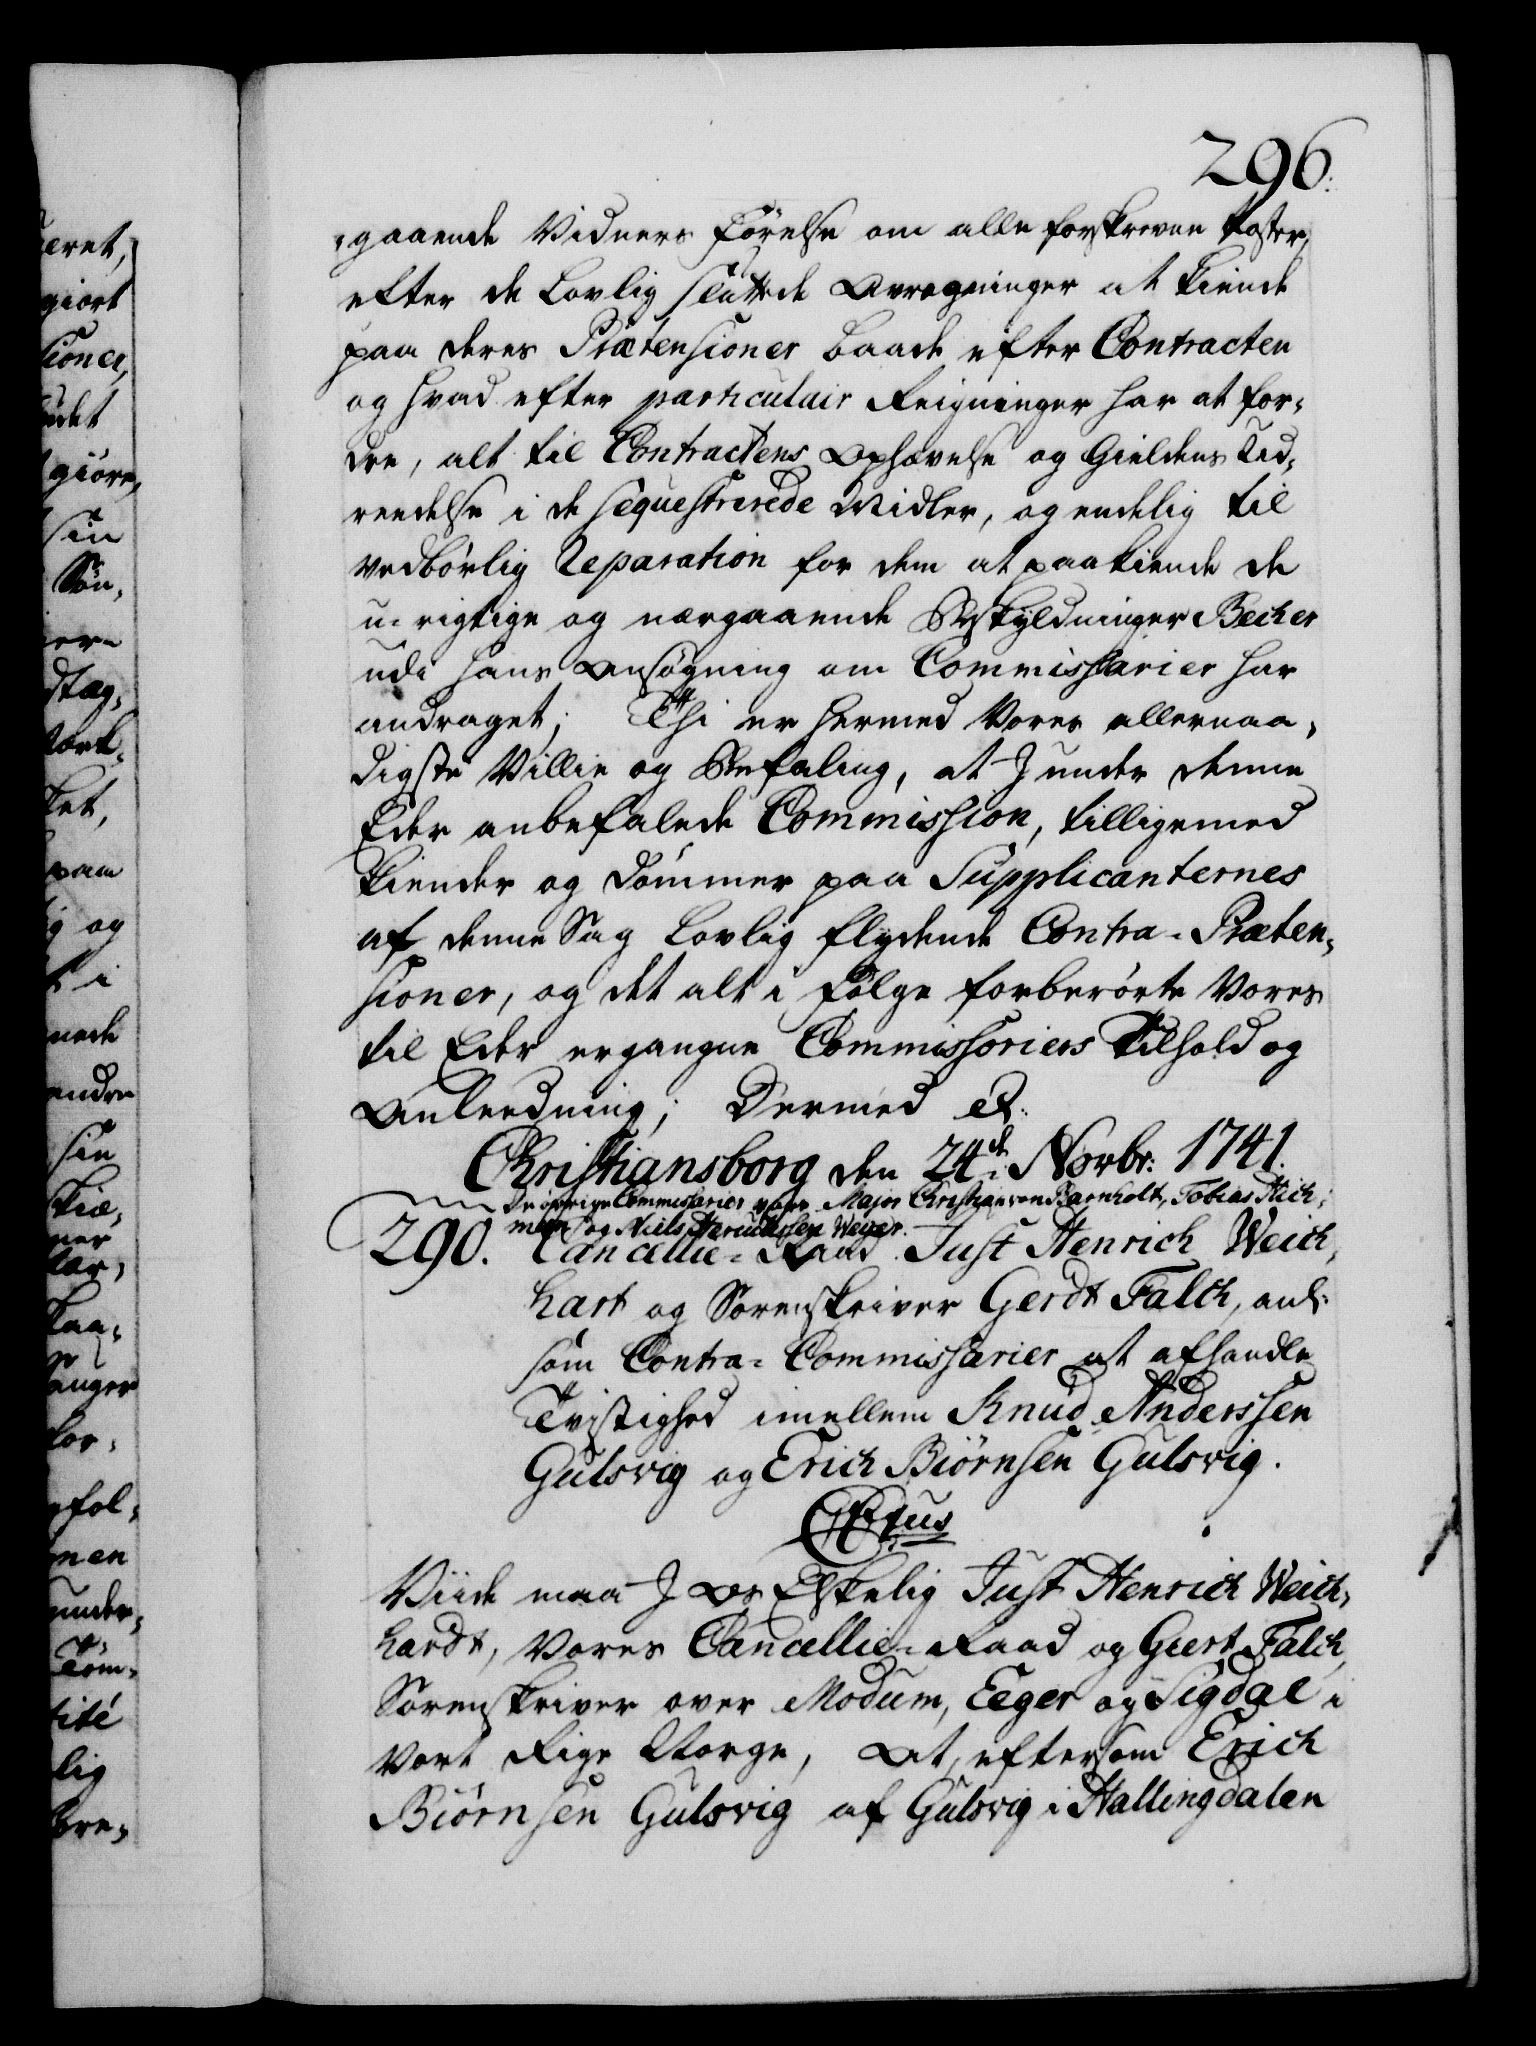 296.
gaaende Vidners Förelse om alle forskrevne Poster,
efter de Lovlig sluttede Avregninger at kiende
paa deres Prætensioner baade efter Contracten
og hvad efter particulair Reigninger har at for-
dre, alt til Contractens Ophævelse og Gieldens Ud-
reedelse i de sequestrerede Midler, og endelig til
vedbörlig Reparation for dem at paakiende de
u-rigtige og nærgaaende Beskyldninger Becher
udi hans Ansögning om Commissarier har
andraget; Thi er hermed Vores allernaa-
digste Villie og Befaling, at J under denne
Eder anbefalede Commission, tilligemed
kiender og dömmer paa Supplicanternes
af denne Sag Lovlig flydende Contra-Præten-
sioner, og det alt i Fölge forberörte Vores
til Eder ergangne Commissoriers Tilhold og
Anleedning; Dermed &.
Christiansborg den 24de Novbr: 1741.
De övrige Commissarier vare Major Christian von Barnholt, Tobias Hich-
man og Niels Weyer.
290. Cancellie-Raad Just Henrich Weich-
hart og Sorenskriver Gerdt Falch, anl:
som Contra-Commissarier at afhandle
Tvistighed imellem Knud Anderssen
Gulsvig og Erich Biörnsen Gulsvig.
C6tus
Viide maa J Os Elskelig Just Henrich Weich-
hardt, Vores Cancellie-Raad og Giert Falch,
Sorenskriver over Modum, Eeger og Sigdal i
Vort Rige Norge, At, eftersom Erich
Biörnsen Gulsvig af Gulsvig i Hallingdalen